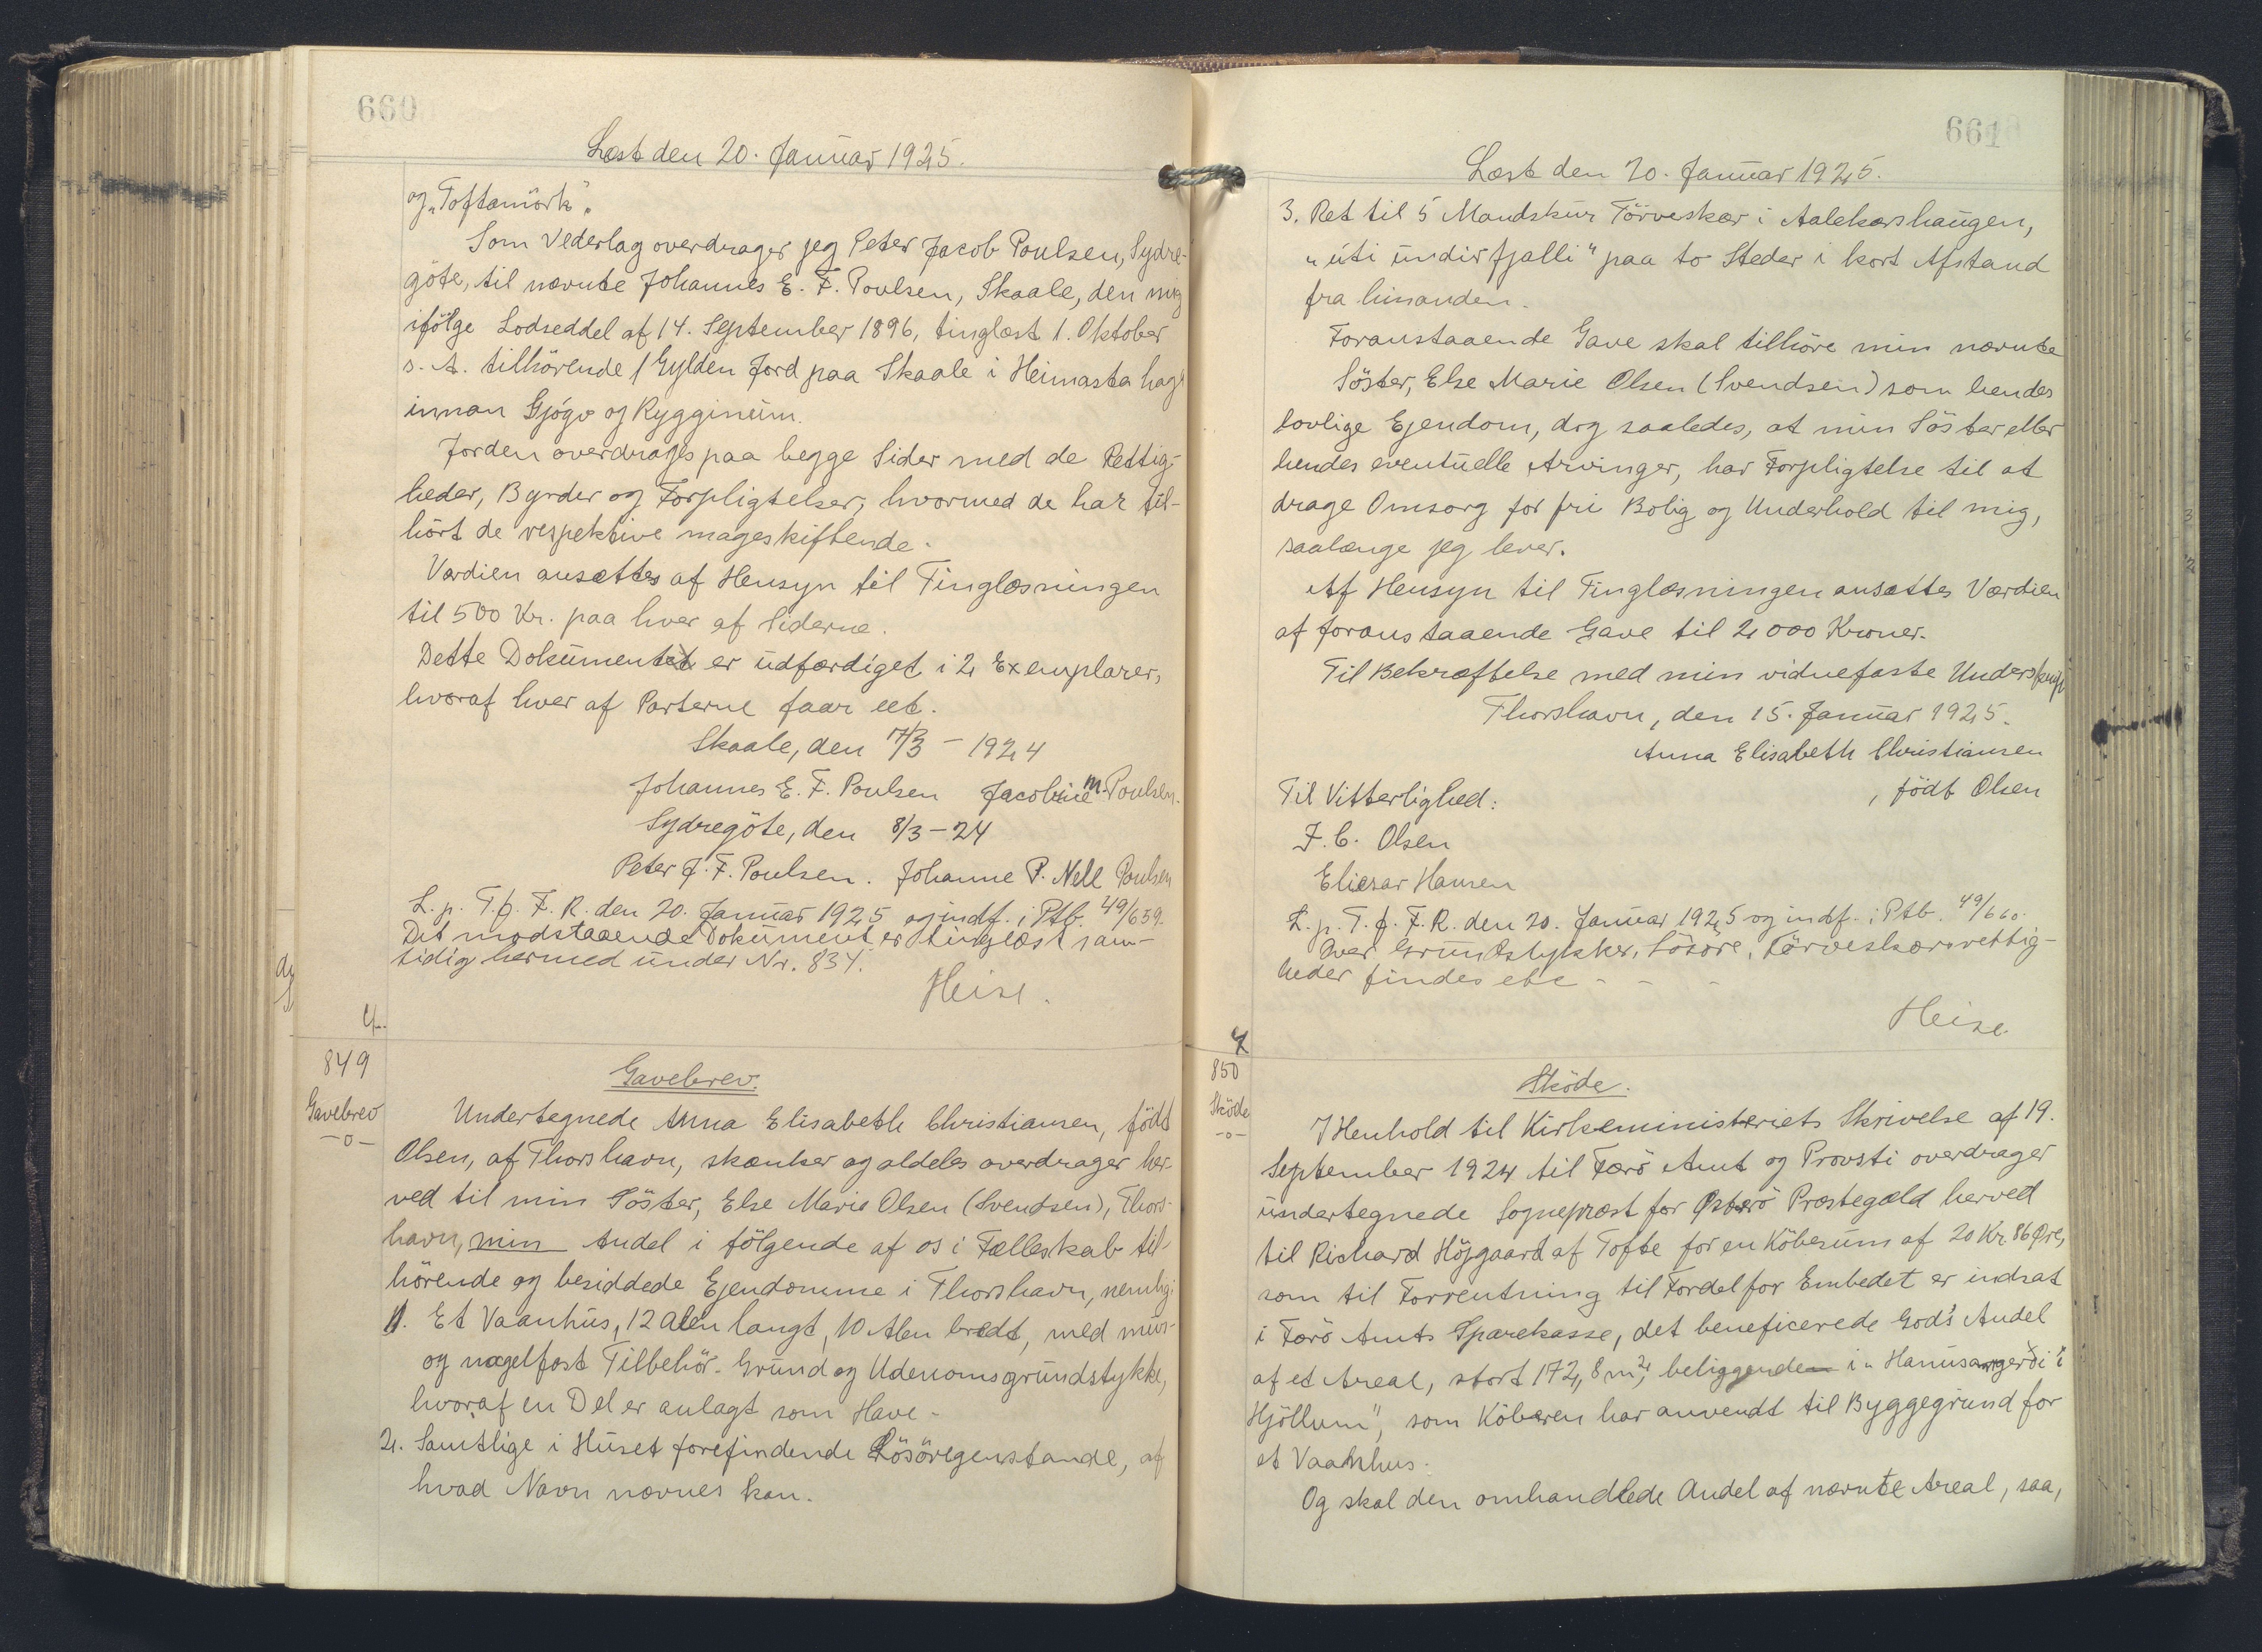 660
Læst den 20. Januar 1925.
og „Toftamörk“.
Som Vederlag overdrager jeg Peter Jacob Poulsen, Sydre-
göte, til nævnte Johannes E. F. Poulsen, Skaale, den mig
ifölge Lodseddel af 14. September 1896, tinglæst 1. Oktober
s. A. tilhörende 1 Gylden Jord paa Skaale i Heimasta hag
innan Gjógv og Rygginum.
Jorden overdrages paa begge Sider med de Rettig-
heder, Byrder og Forpligtelser, hvormed de har til-
hört de respektive mageskiftende.
Værdien ansættes af Hensyn til Tinglæsningen
til 500 Kr. paa hver af Siderne.
Dette Dokument er udfærdiget i 2 Exemplarer,
hvoraf hver af Parterne faar eet.
Skaale, den 17/3 - 1924
Johannes E. F. Poulsen Jacobine M. Poulsen.
Sydregöte, den 8/3 - 24
Peter J. F. Poulsen. Johanne P. Nell Poulsen
L. p. T. f. F. R. den 20. Januar 1925 og indf. i Ptb. 49/659.
Det modstaaende Dokument er tinglæst sam-
tidig hermed under Nr. 834.
Heise.
4
849
Gavebrev
-o-
Gavebrev.
Undertegnede Anna Elisabeth Christiansen, födt
Olsen, af Thorshavn, skænker og aldeles overdrager her-
ved til min Söster, Else Marie Olsen (Svendsen), Thors-
havn, min Andel i fölgende af os i Fælleskab til-
hörende og besiddede Ejendomme i Thorshavn, nemlig:
1. Et Vaanhus, 12 Alen langt, 10 Alen bredt, med mur-
og nagelfast Tilbehör. Grund og Udenomsgrundstykke,
hvoraf en Del er anlagt som Have.
2. Samtlige i Huset forefindende Lösöregenstande, af
hvad Navn nævnes kan.
661
Læst den 20. Januar 1925.
3. Ret til 5 Mandskur Törveskær i Aalekærshaugen,
„úti undir fjalli“ paa to Steder i kort Afstand
fra hinanden.
Foranstaaende Gave skal tilhöre min nævnte
Söster, Else Marie Olsen (Svendsen) som hendes
lovlige Ejendom, dog saaledes, at min Söster eller
hendes eventuelle Arvinger, har Forpligtelse til at
drage Omsorg for fri Bolig og Underhold til mig,
saalænge jeg lever.
Af Hensyn til Tinglæsningen ansættes Værdien
af foranstaaende Gave til 2000 Kroner.
Til Bekræftelse med min vidnefaste Underskrift
Thorshavn, den 15. Januar 1925.
Anna Elisabeth Christiansen
, födt Olsen
Til Vitterlighed:
J. C. Olsen
Eliesar Hansen
L. p. T. f. F. R. den 20. Januar 1925 og indf. i Ptb. 49/660.
Over Grundstykker, Lösöre, Törveskærsrettig-
heder findes etc - - -
Heise
4
850
Sköde
-o-
Sköde.
I Henhold til Kirkeministeriets Skrivelse af 19.
September 1924 til Færö Amt og Provsti overdrager
undertegnede Sognepræst for Østerö Præstegæld herved
til Richard Höjgaard af Tofte for en Köbesum af 20 Kr. 86 Øre,
som til Forrentning til Fordel for Embedet er indsat
i Færö Amts Sparekasse, det beneficerede Gods's Andel
af et Areal, stort 172,8 m², beliggende i „Hanusargerði i
Hjöllum“, som Köberen har anvendt til Byggegrund for
et Vaanhus.
Og skal den omhandlede Andel af nævnte Areal, saa,